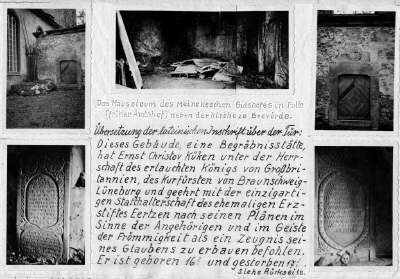 Das Mausoleum des Meinekeschen Gutshofes in Polle
(früher Amtshof), neben der Kirche zu Brevörde.
Übersetzung der lateinischen Inschrift über der Tür:
Dieses Gebäude, eine Begräbnisstätte,
hat Ernst Christov Küken unter der Herr-
schaft des erlauchten Königs von Großbri-
tannien, des Kurfürsten von Braunschweig-
Lüneburg und geehrt mit der einzigarti-
gen Statthalterschaft des ehemaligen Erz-
stiftes Eertzen nach seinen Plänen im
Sinne der Angehörigen und im Geiste
der Frömmigkeit als ein Zeugnis sei-
nes Glaubens zu erbauen befohlen.
Er ist geboren 16 und gestorben
siehe Rückseite.